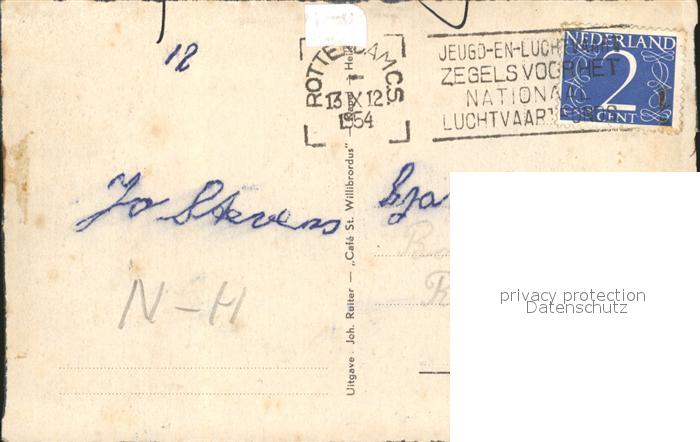 12
ROTTERDAM C.S.
1
13 X 12
1954
JEUGD-EN-LUCHTVAART
ZEGELS VOOR HET
NATIONAAL
LUCHTVAART
NEDERLAND
2
CENT
Jo Stevens
N-H
Uitgave: Joh. Ruiter — „Café St. Willibrordus"
privacy protection
Datenschutz